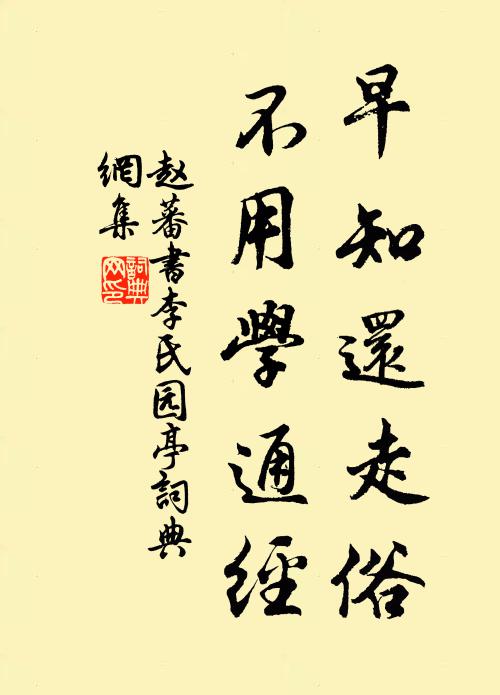 早知還走俗
不用學通經
赵蕃書李氏园亭詞典
網集
詞典网印